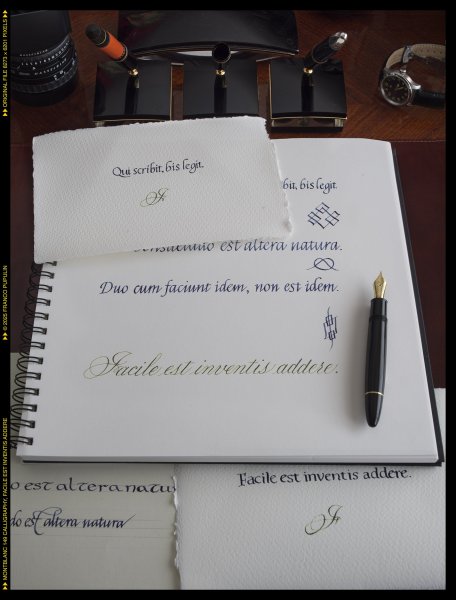 ORIGINAL FILE 6273 x 8201 PIXELS
© 2025 FRANCO PUPULIN
MONTBLANC 149 CALLIGRAPHY, FACILE EST INVENTIS ADDERE
Qui scribit, bis legit.
F
bit, bis legit.
Consuetudo est altera natura.
Duo cum faciunt idem, non est idem.
Facile est inventis addere.
o est altera natu
do est altera natura
Facile est inventis addere.
F